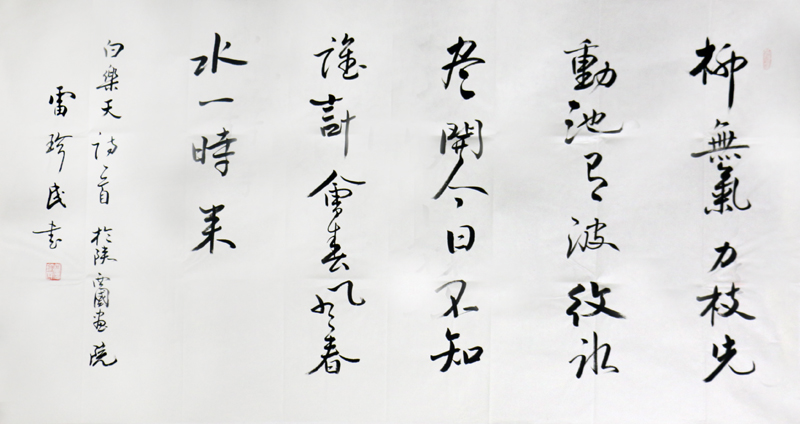 柳無氣力枝先
動池有波紋冰
尽開今日不知
誰計會春風春
水一時来
白樂天詩一首 於陕西國畫院
雷珍民书